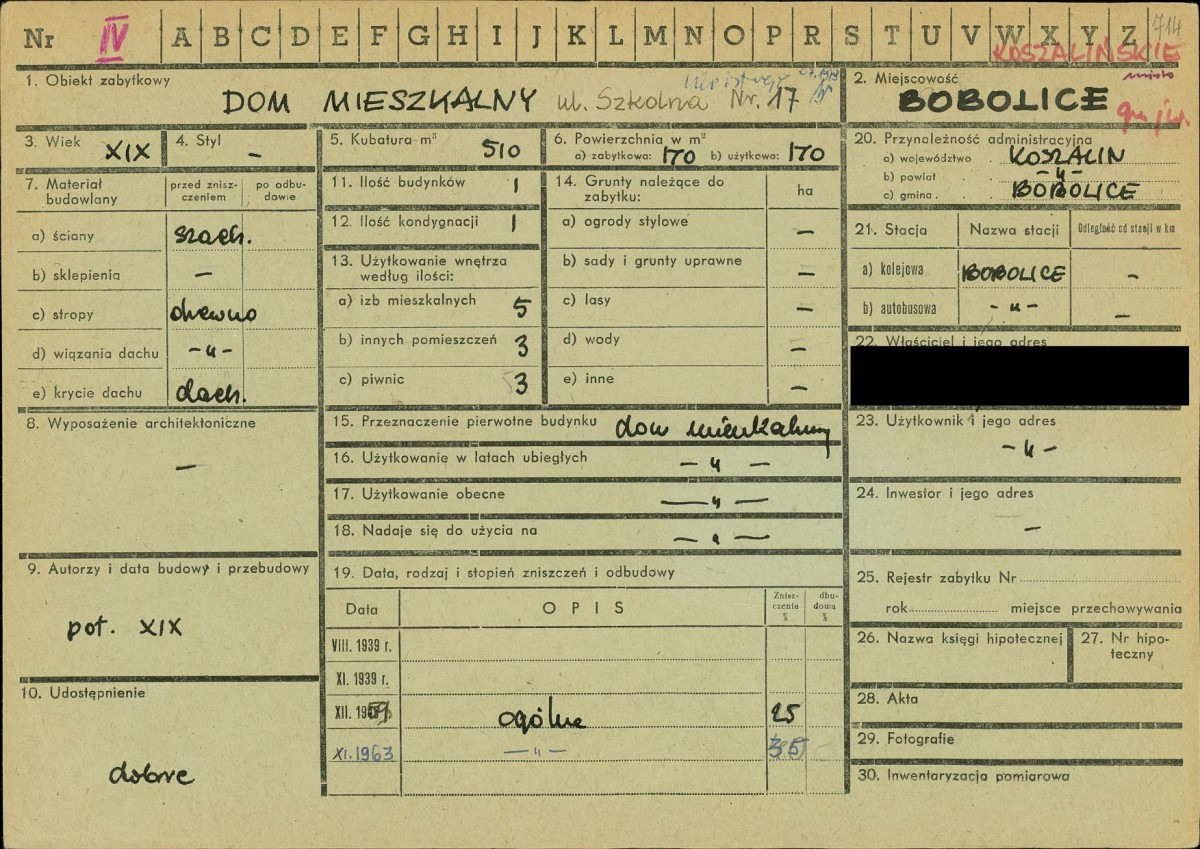 Nr IV A B C D E F G H I J K L M N O P R S T U V W X Y Z 714
KOSZALIŃSKIE
miasto
1. Obiekt zabytkowy
Nie istnieje
DOM MIESZKALNY ul. Szkolna Nr. 17
2. Miejscowość
BOBOLICE
3. Wiek XIX
4. Styl –
5. Kubatura m³ 510
6. Powierzchnia w m²
a) zabytkowa: 170 b) użytkowa: 170
7. Materiał budowlany
przed zniszczeniem
po odbudowie
a) ściany szach.
b) sklepienia –
c) stropy drewno
d) wiązania dachu -"-
e) krycie dachu dach.
8. Wyposażenie architektoniczne
–
9. Autorzy i data budowy i przebudowy
poł. XIX
10. Udostępnienie
dobre
11. Ilość budynków 1
12. Ilość kondygnacji 1
13. Użytkowanie wnętrza według ilości:
a) izb mieszkalnych 5
b) innych pomieszczeń 3
c) piwnic 3
14. Grunty należące do zabytku: ha
a) ogrody stylowe –
b) sady i grunty uprawne –
c) lasy –
d) wody –
e) inne –
15. Przeznaczenie pierwotne budynku dom mieszkalny
16. Użytkowanie w latach ubiegłych -"-
17. Użytkowanie obecne -"-
18. Nadaje się do użycia na -"-
19. Data, rodzaj i stopień zniszczeń i odbudowy
Data OPIS Zniszczenia % dbudowa %
VIII. 1939 r.
XI. 1939 r.
XII. 1959 r. ogólne 25
XI. 1963 -"- 35
20. Przynależność administracyjna
a) województwo KOSZALIN
b) powiat -"-
c) gmina BOBOLICE
21. Stacja Nazwa stacji Odległość od stacji w km
a) kolejowa BOBOLICE –
b) autobusowa -"- –
22. Właściciel i jego adres
23. Użytkownik i jego adres
-"-
24. Inwestor i jego adres
–
25. Rejestr zabytku Nr
rok miejsce przechowywania
26. Nazwa księgi hipotecznej
27. Nr hipoteczny
28. Akta
29. Fotografie
30. Inwentaryzacja pomiarowa